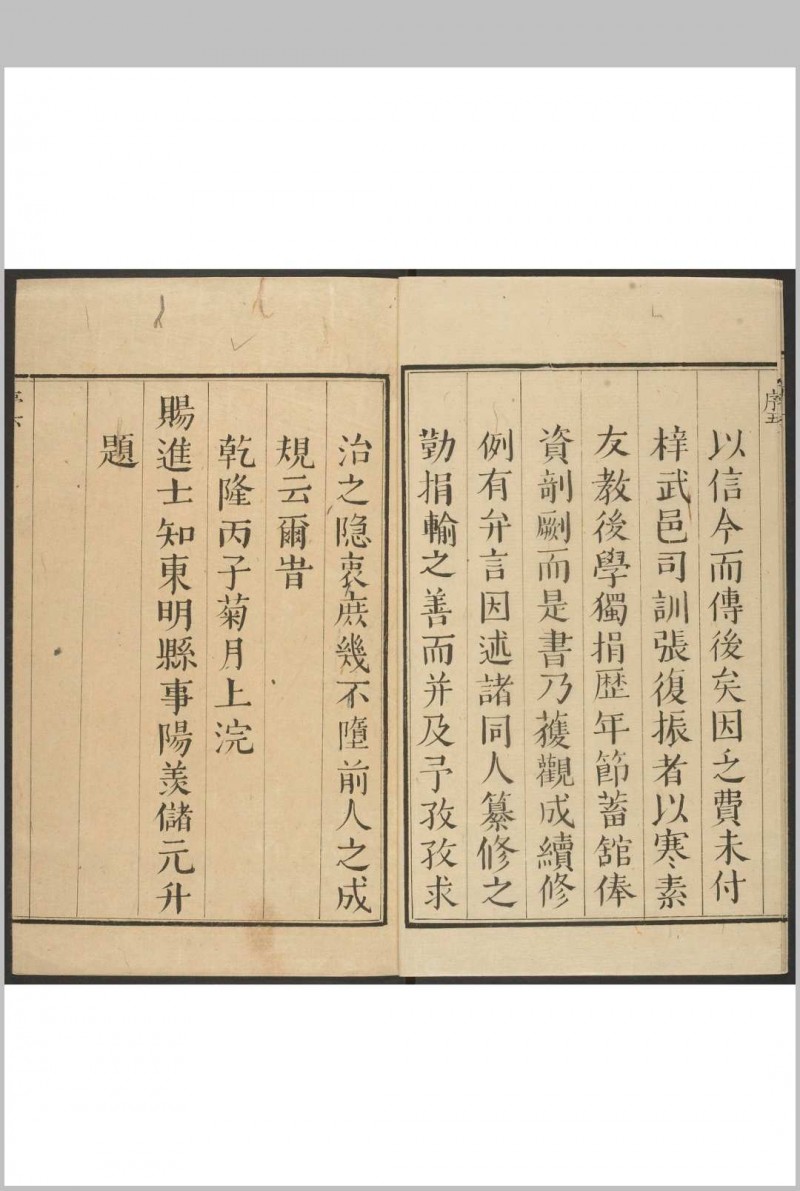 序五
以信今而傳後矣因之費未付
梓武邑司訓張復振者以寒素
友教後學獨捐歷年節蓄舘俸
資剞劂而是書乃蒦觀成續修
例有弁言因述諸同人纂修之
勤捐輸之善而并及予孜孜求
治之隐衷庶幾不墮前人之成
規云爾旹
乾隆丙子菊月上浣
賜進士知東明縣事陽羨儲元升
題